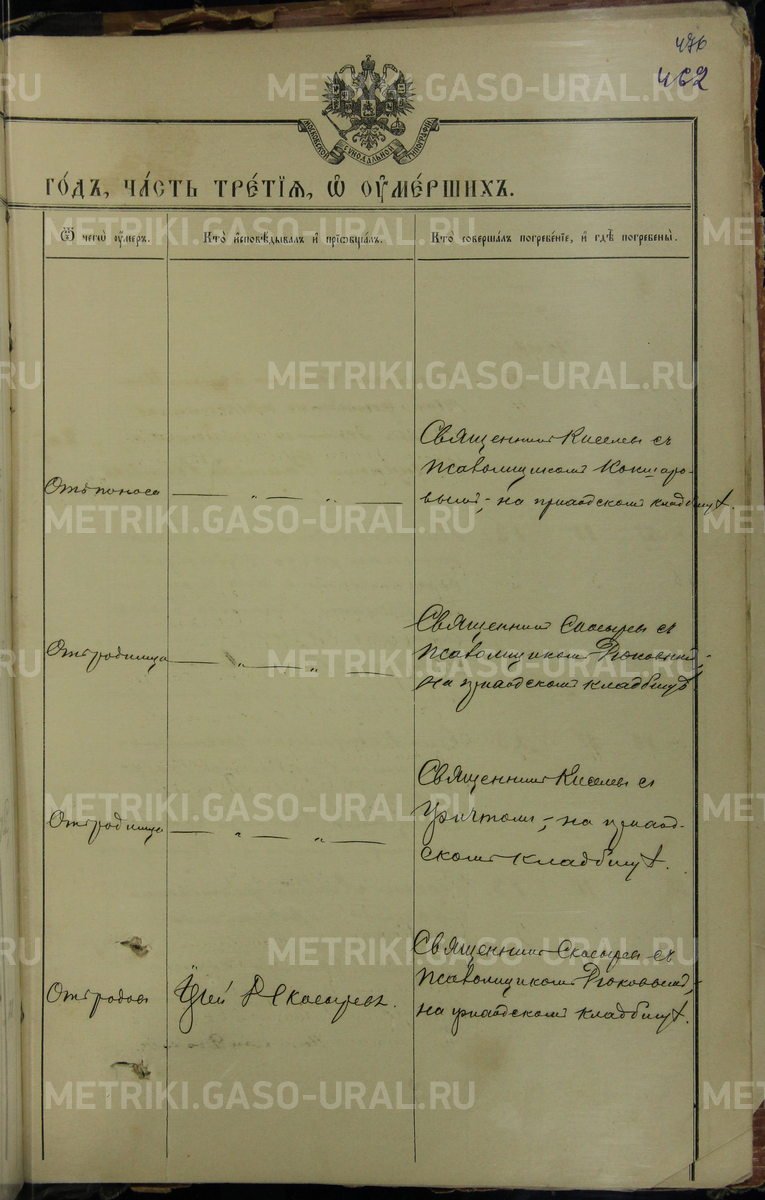 476
462
МОСКОВСКОЙ СѴНОДАЛЬНОЙ ТИПОГРАФІИ
ГО́ДЪ, ЧА́СТЬ ТРЕ́ТІѦ, Ѽ ОУ҆МЕ́РШИХЪ.
Ѿ чегѡ̀ ᲂу҆́меръ.
Кто̀ и҆сповѣ́дывалъ и҆ прїѡбща́лъ.
Кто̀ соверша́лъ погребе́нїе, и҆ гдѣ̀ погребены̀.
Отъ поноса — „ — „ —
Священникъ Киселевъ съ
псаломщикомъ Кокшаро-
вымъ, - на приходскомъ кладбищѣ.
Отъ родимца — „ — „ —
Священникъ Скосыревъ съ
псаломщикомъ
на приходскомъ кладбищѣ
Отъ родимца — „ — „ —
Священникъ Киселевъ съ
причтомъ, - на приход-
скомъ кладбищѣ.
Отъ родовъ
Іерей Скосыревъ.
Священникъ Скосыревъ съ
псаломщикомъ
на приходскомъ кладбищѣ.
METRIKI.GASO-URAL.RU